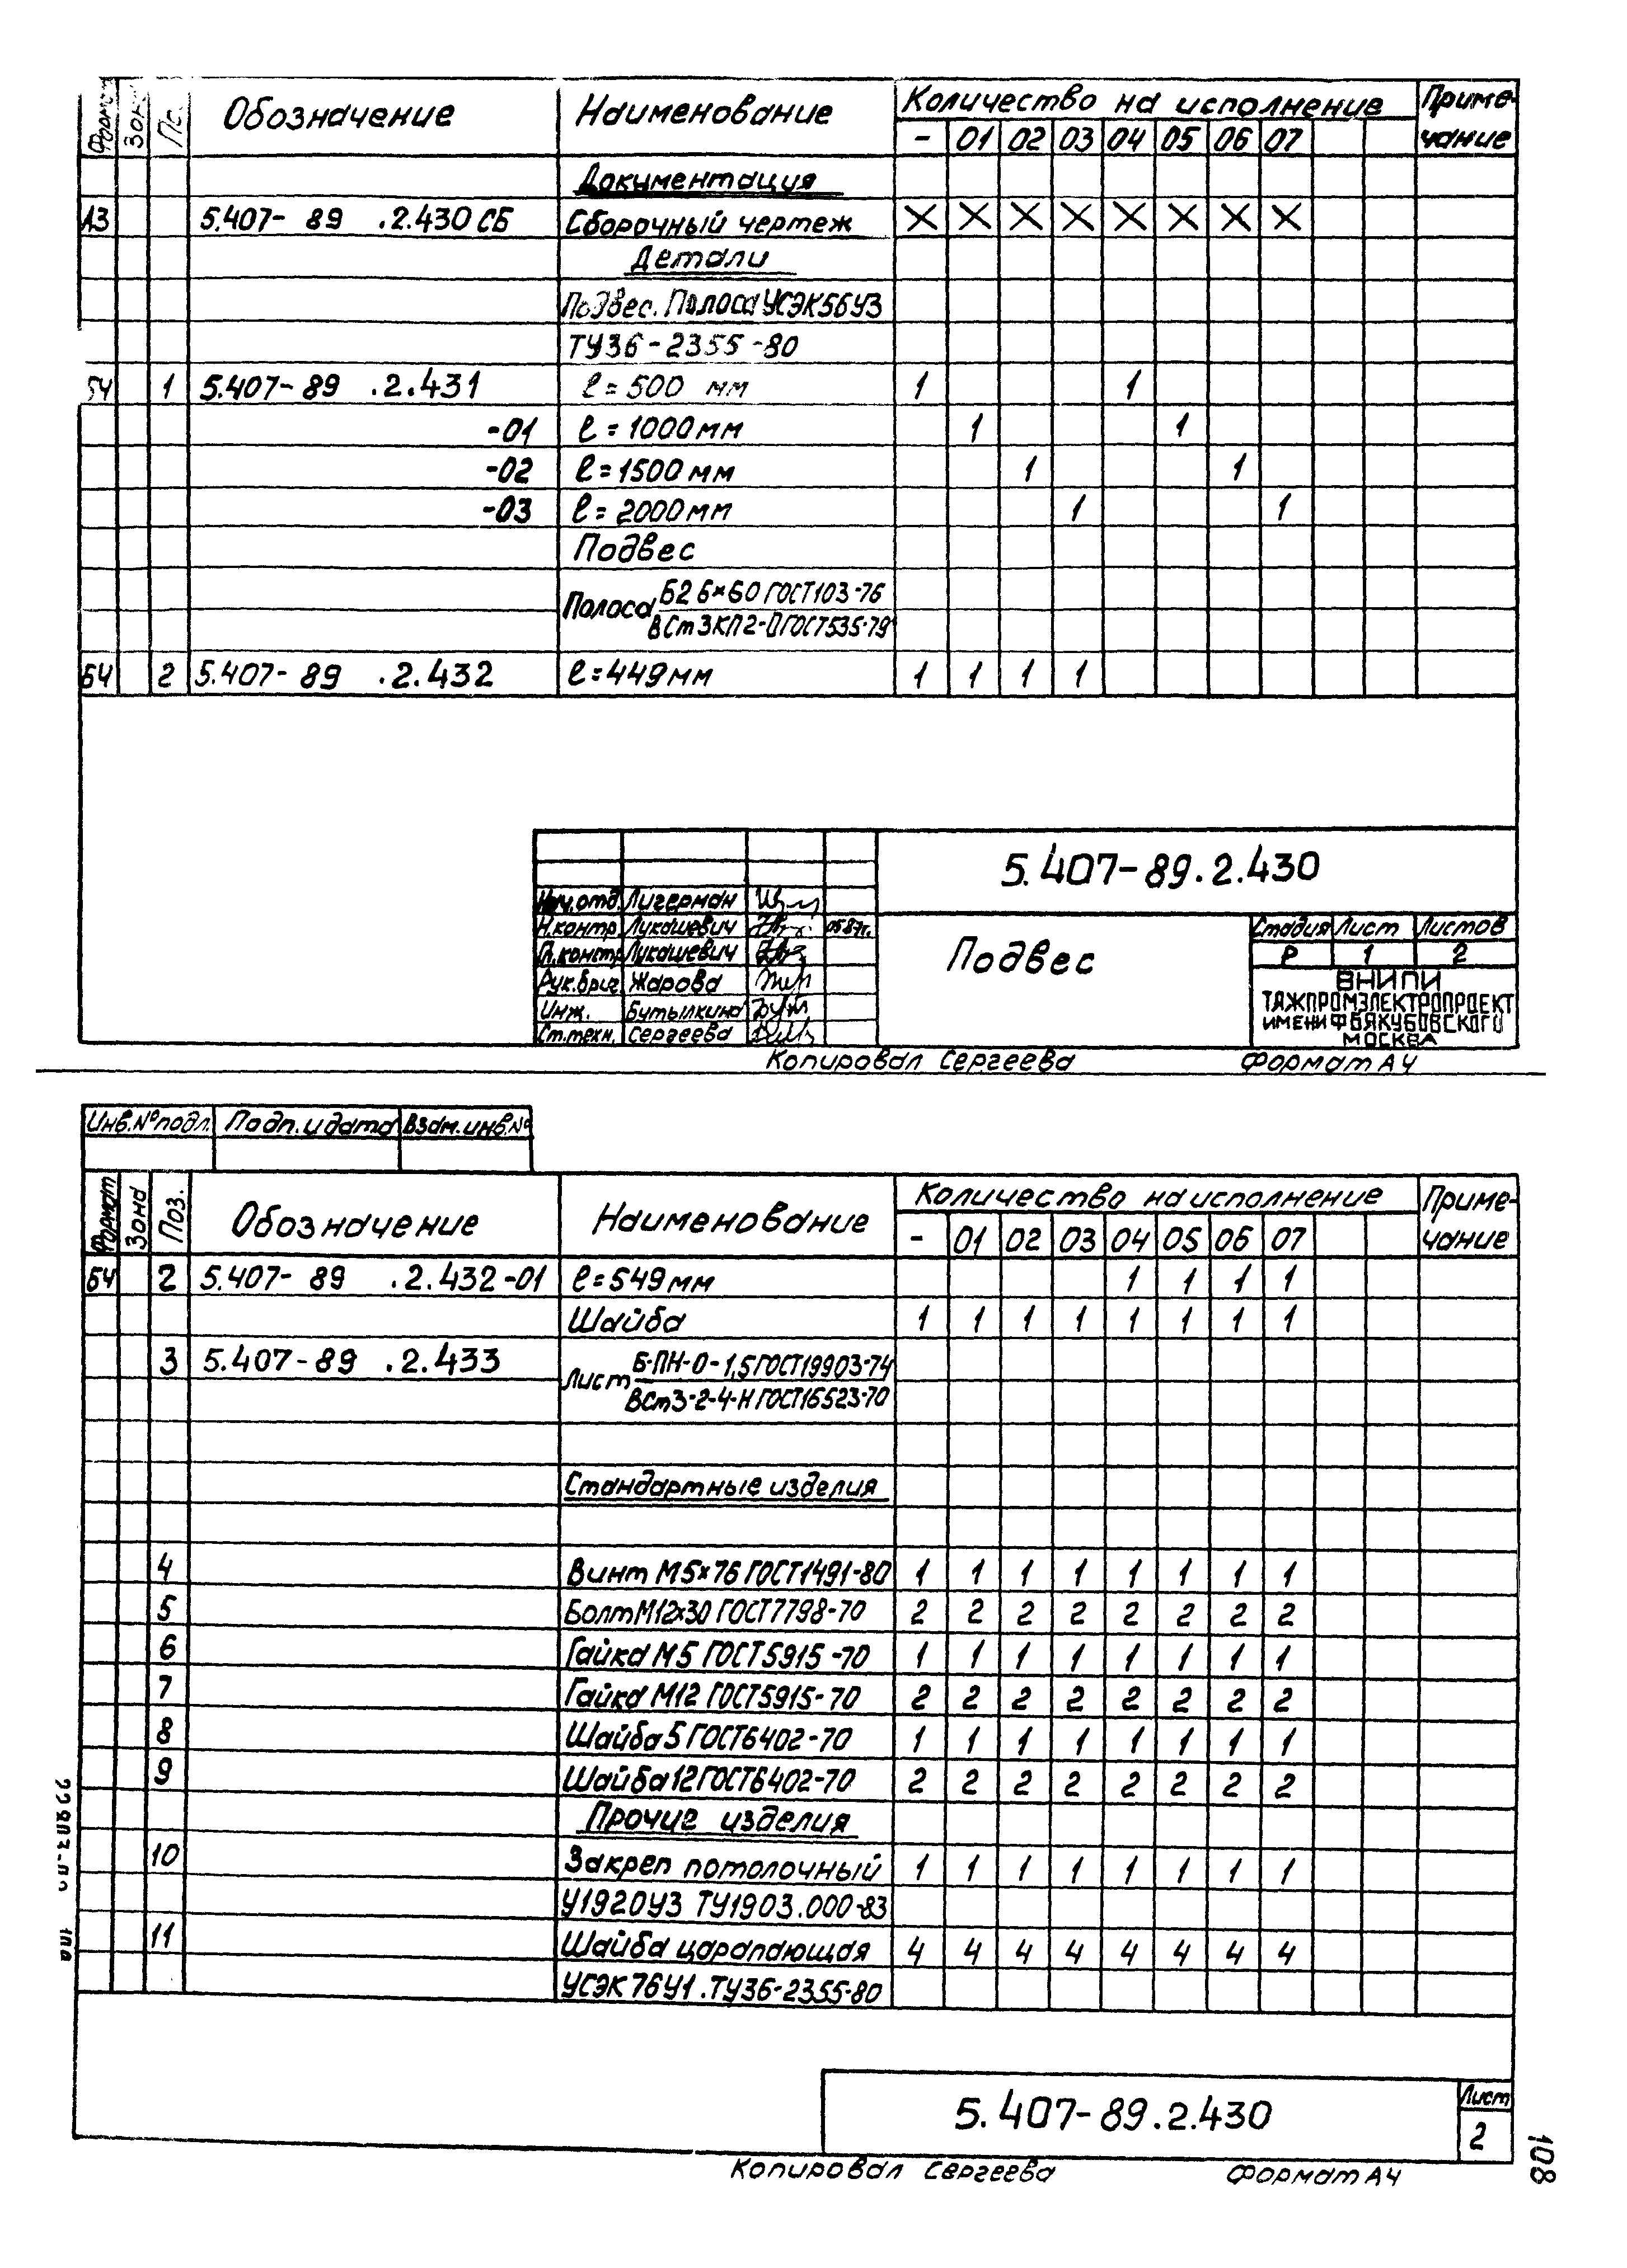 Формат Зона Поз. Обозначение Наименование Количество на исполнение Приме-
чание
- 01 02 03 04 05 06 07
Документация
А3 5.407- 89 .2.430 СБ Сборочный чертеж X X X X X X X X
Детали
Подвес. Полоса УСЭК56У3
ТУ36-2355-80
БЧ 1 5.407- 89 .2.431 ℓ=500 мм 1 1
-01 ℓ=1000мм 1 1
-02 ℓ=1500мм 1 1
-03 ℓ=2000мм 1 1
Подвес
Полоса Б2 6×60 ГОСТ103-76
ВСт3КП2-П ГОСТ535-79
БЧ 2 5.407- 89 .2.432 ℓ=449мм 1 1 1 1
5.407-89.2.430
Нач.отд. Лигерман
Н.контр. Лукашевич 05 87г.
Гл.констр. Лукашевич
Рук.бриг. Жарова
Инж. Бутылкина
Ст.техн. Сергеева
Подвес
Стадия Лист Листов
Р 1 2
ВНИПИ
ТЯЖПРОМЭЛЕКТРОПРОЕКТ
ИМЕНИ Ф Б ЯКУБОВСКОГО
МОСКВА
Копировал Сергеева Формат А4
Инв.№ подл. Подп. и дата Взам.инв.№
Формат Зона Поз. Обозначение Наименование Количество на исполнение Приме-
чание
- 01 02 03 04 05 06 07
БЧ 2 5.407- 89 .2.432-01 ℓ=549мм 1 1 1 1
Шайба 1 1 1 1 1 1 1 1
3 5.407-89 .2.433 Лист Б-ПН-О-1,5ГОСТ19903-74
ВСт3-2-4-Н ГОСТ16523-70
Стандартные изделия
4 Винт М5×76 ГОСТ1491-80 1 1 1 1 1 1 1 1
5 Болт М12×30 ГОСТ7798-70 2 2 2 2 2 2 2 2
6 Гайка М5 ГОСТ5915-70 1 1 1 1 1 1 1 1
7 Гайка М12 ГОСТ5915-70 2 2 2 2 2 2 2 2
8 Шайба 5 ГОСТ6402-70 1 1 1 1 1 1 1 1
9 Шайба 12 ГОСТ6402-70 2 2 2 2 2 2 2 2
Прочие изделия
10 Закреп потолочный 1 1 1 1 1 1 1 1
У1920У3 ТУ1903.000-83
11 Шайба царапающая 4 4 4 4 4 4 4 4
УСЭК76У1.ТУ36-2355-80
5.407-89.2.430
Лист
2
Копировал Сергеева Формат А4
108